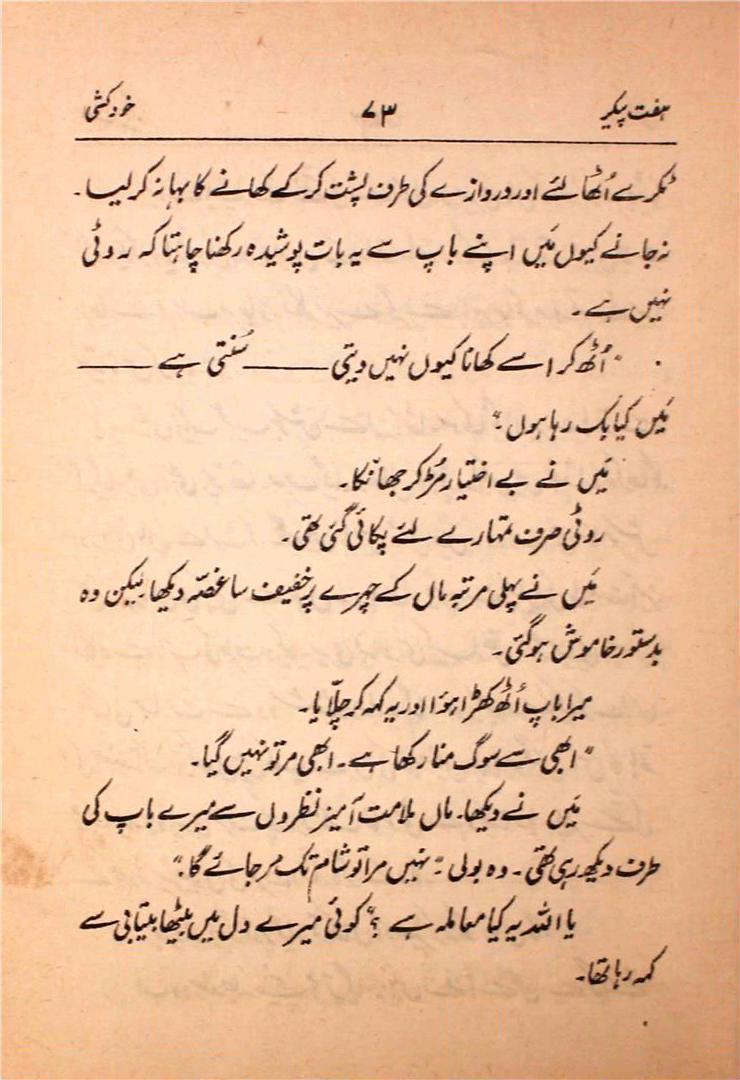 ہفت پیکر ۷۳ خودکشی
ٹکرے اُٹھا لئے اور دروازے کی طرف پشت کرکے کھانے کا بہانہ کر لیا۔
نہ جانے کیوں مَیں اپنے باپ سے یہ بات پوشیدہ رکھنا چاہتا کہ روٹی
نہیں ہے۔
"اُٹھ کر اسے کھانا کیوں نہیں دیتی ——— سُنتی ہے ———
مَیں کیا بک رہا ہوں؟"
مَیں نے بے اختیار مُڑ کر جھانکا۔
روٹی صرف تمہارے لئے پکائی گئی تھی۔
مَیں نے پہلی مرتبہ ماں کے چہرے پر خفیف سا غصّہ دیکھا۔ لیکن وہ
بدستور خاموش ہو گئی۔
میرا باپ اُٹھ کھڑا ہؤا اور یہ کہہ کر چلّایا۔
"ابھی سے سوگ منا رکھا ہے۔ ابھی مر تو نہیں گیا۔
مَیں نے دیکھا۔ ماں ملامت آمیز نظروں سے میرے باپ کی
طرف دیکھ رہی تھی۔ وہ بولی۔ "نہیں مرا تو شام تک مر جائے گا۔"
یا اللہ یہ کیا معاملہ ہے؟" کوئی میرے دل میں بیٹھا بیتابی سے
کہہ رہا تھا۔